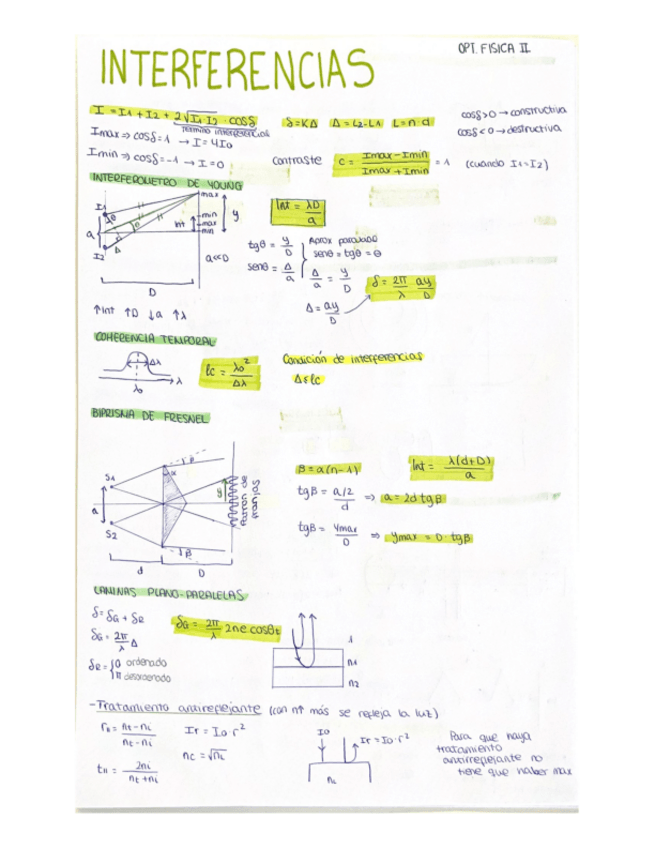 OPT. FISICA II
INTERFERENCIAS
I = I1 + I2 + 2√I1 I2 · cosδ
término interferencial
δ=KΔ Δ=L2-L1 L=n·d
cosδ>0 → constructiva
cosδ<0 → destructiva
Imax ⇒ cosδ=1 → I=4I0
Imin ⇒ cosδ=-1 → I=0
contraste C = Imax-Imin / Imax+Imin = 1 (cuando I1=I2)
INTERFEROMETRO DE YOUNG
I1
I2
a
θ
θ
Δ
D
max
min
max
min
Int
y
a<<D
Int = λD/a
tgθ = y/D
senθ = Δ/a
Aprox paraxial
senθ=tgθ=θ
Δ/a = y/D
Δ = ay/D
δ = 2π/λ ay/D
↑Int ↑D ↓a ↑λ
COHERENCIA TEMPORAL
Δλ
λ
λ0
lc = λ0²/Δλ
Condición de interferencias
Δ≤lc
BIPRISMA DE FRESNEL
S1
S2
a
α
β
β
y
Patron de franjas
d
D
β=α(n-1)
Int = λ(d+D)/a
tgβ = a/2 / d ⇒ a=2d tgβ
tgβ = ymax/D ⇒ ymax = D·tgβ
LAMINAS PLANO-PARALELAS
δ=δG+δR
δG = 2π/λ Δ
δR = {0 ordenado
π desordenado
δG = 2π/λ 2ne cosθt
1
n1
n2
-Tratamiento antirreflejante (con n↑ más se refleja la luz)
r11 = nt-ni / nt-ni
Ir = I0 r²
nc = √ni
t11 = 2ni / nt+ni
I0
Ir = I0·r²
Para que haya
tratamiento
antirreflejante no
tiene que haber max